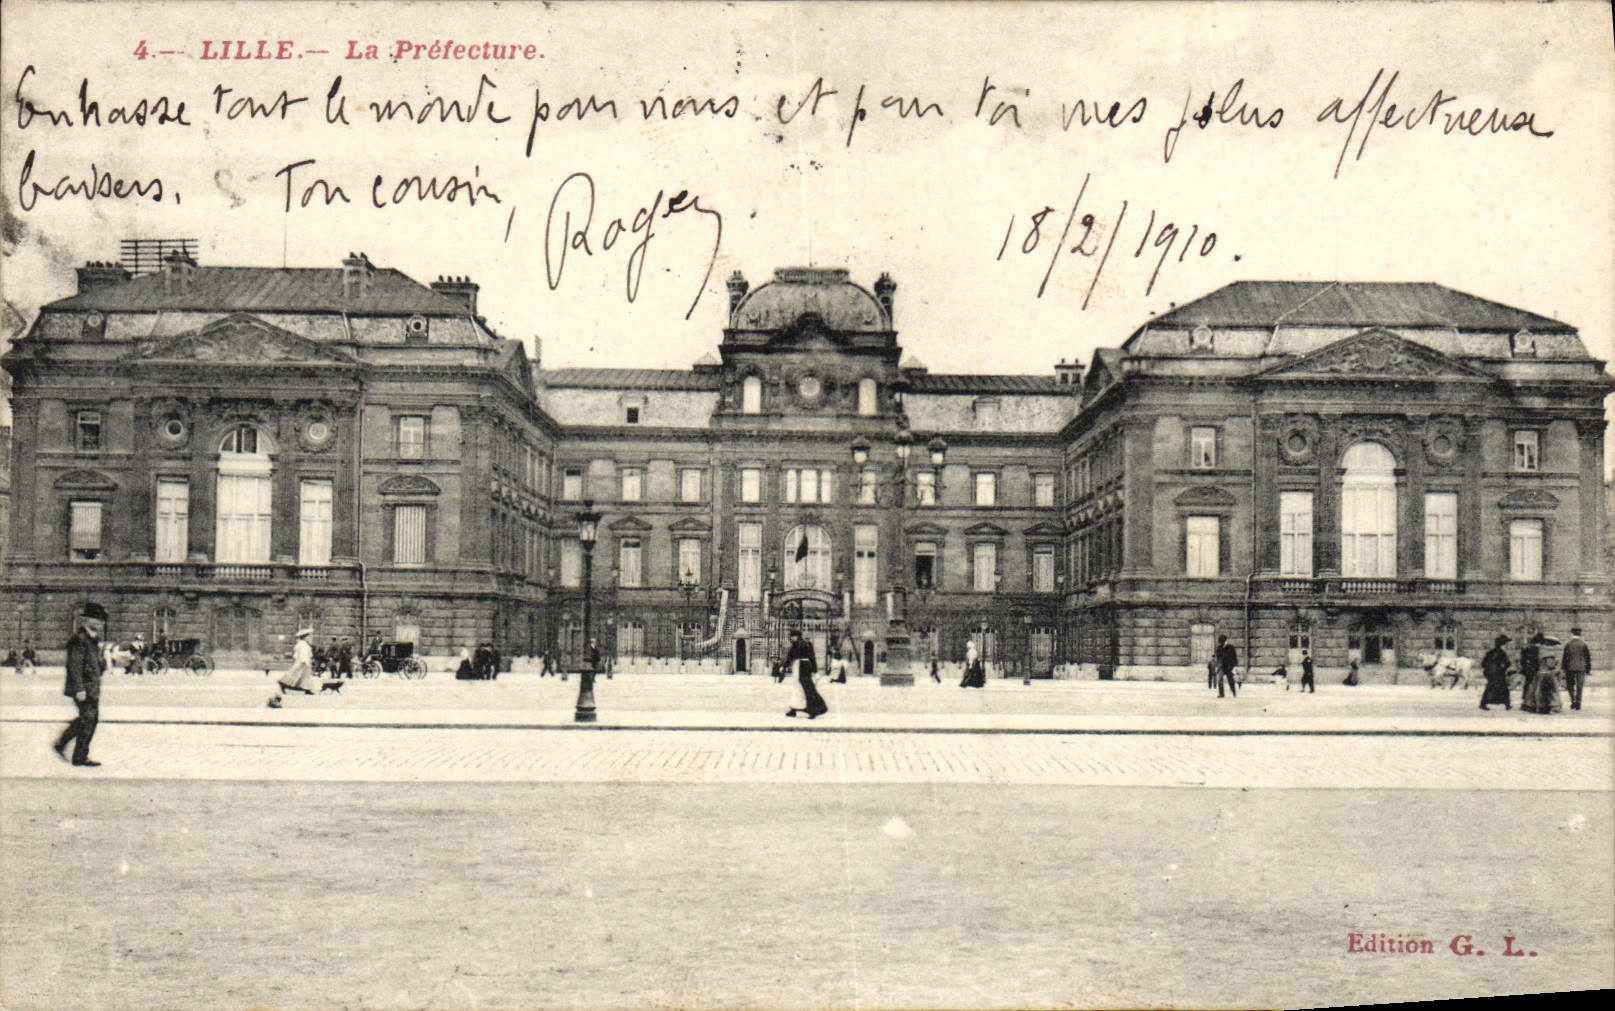 4.— LILLE.— La Préfecture.
Embrasse tout le monde pour nous et pour toi mes plus affectueux
baisers. Ton cousin, Roger.
18/2/1910.
Edition G. L.